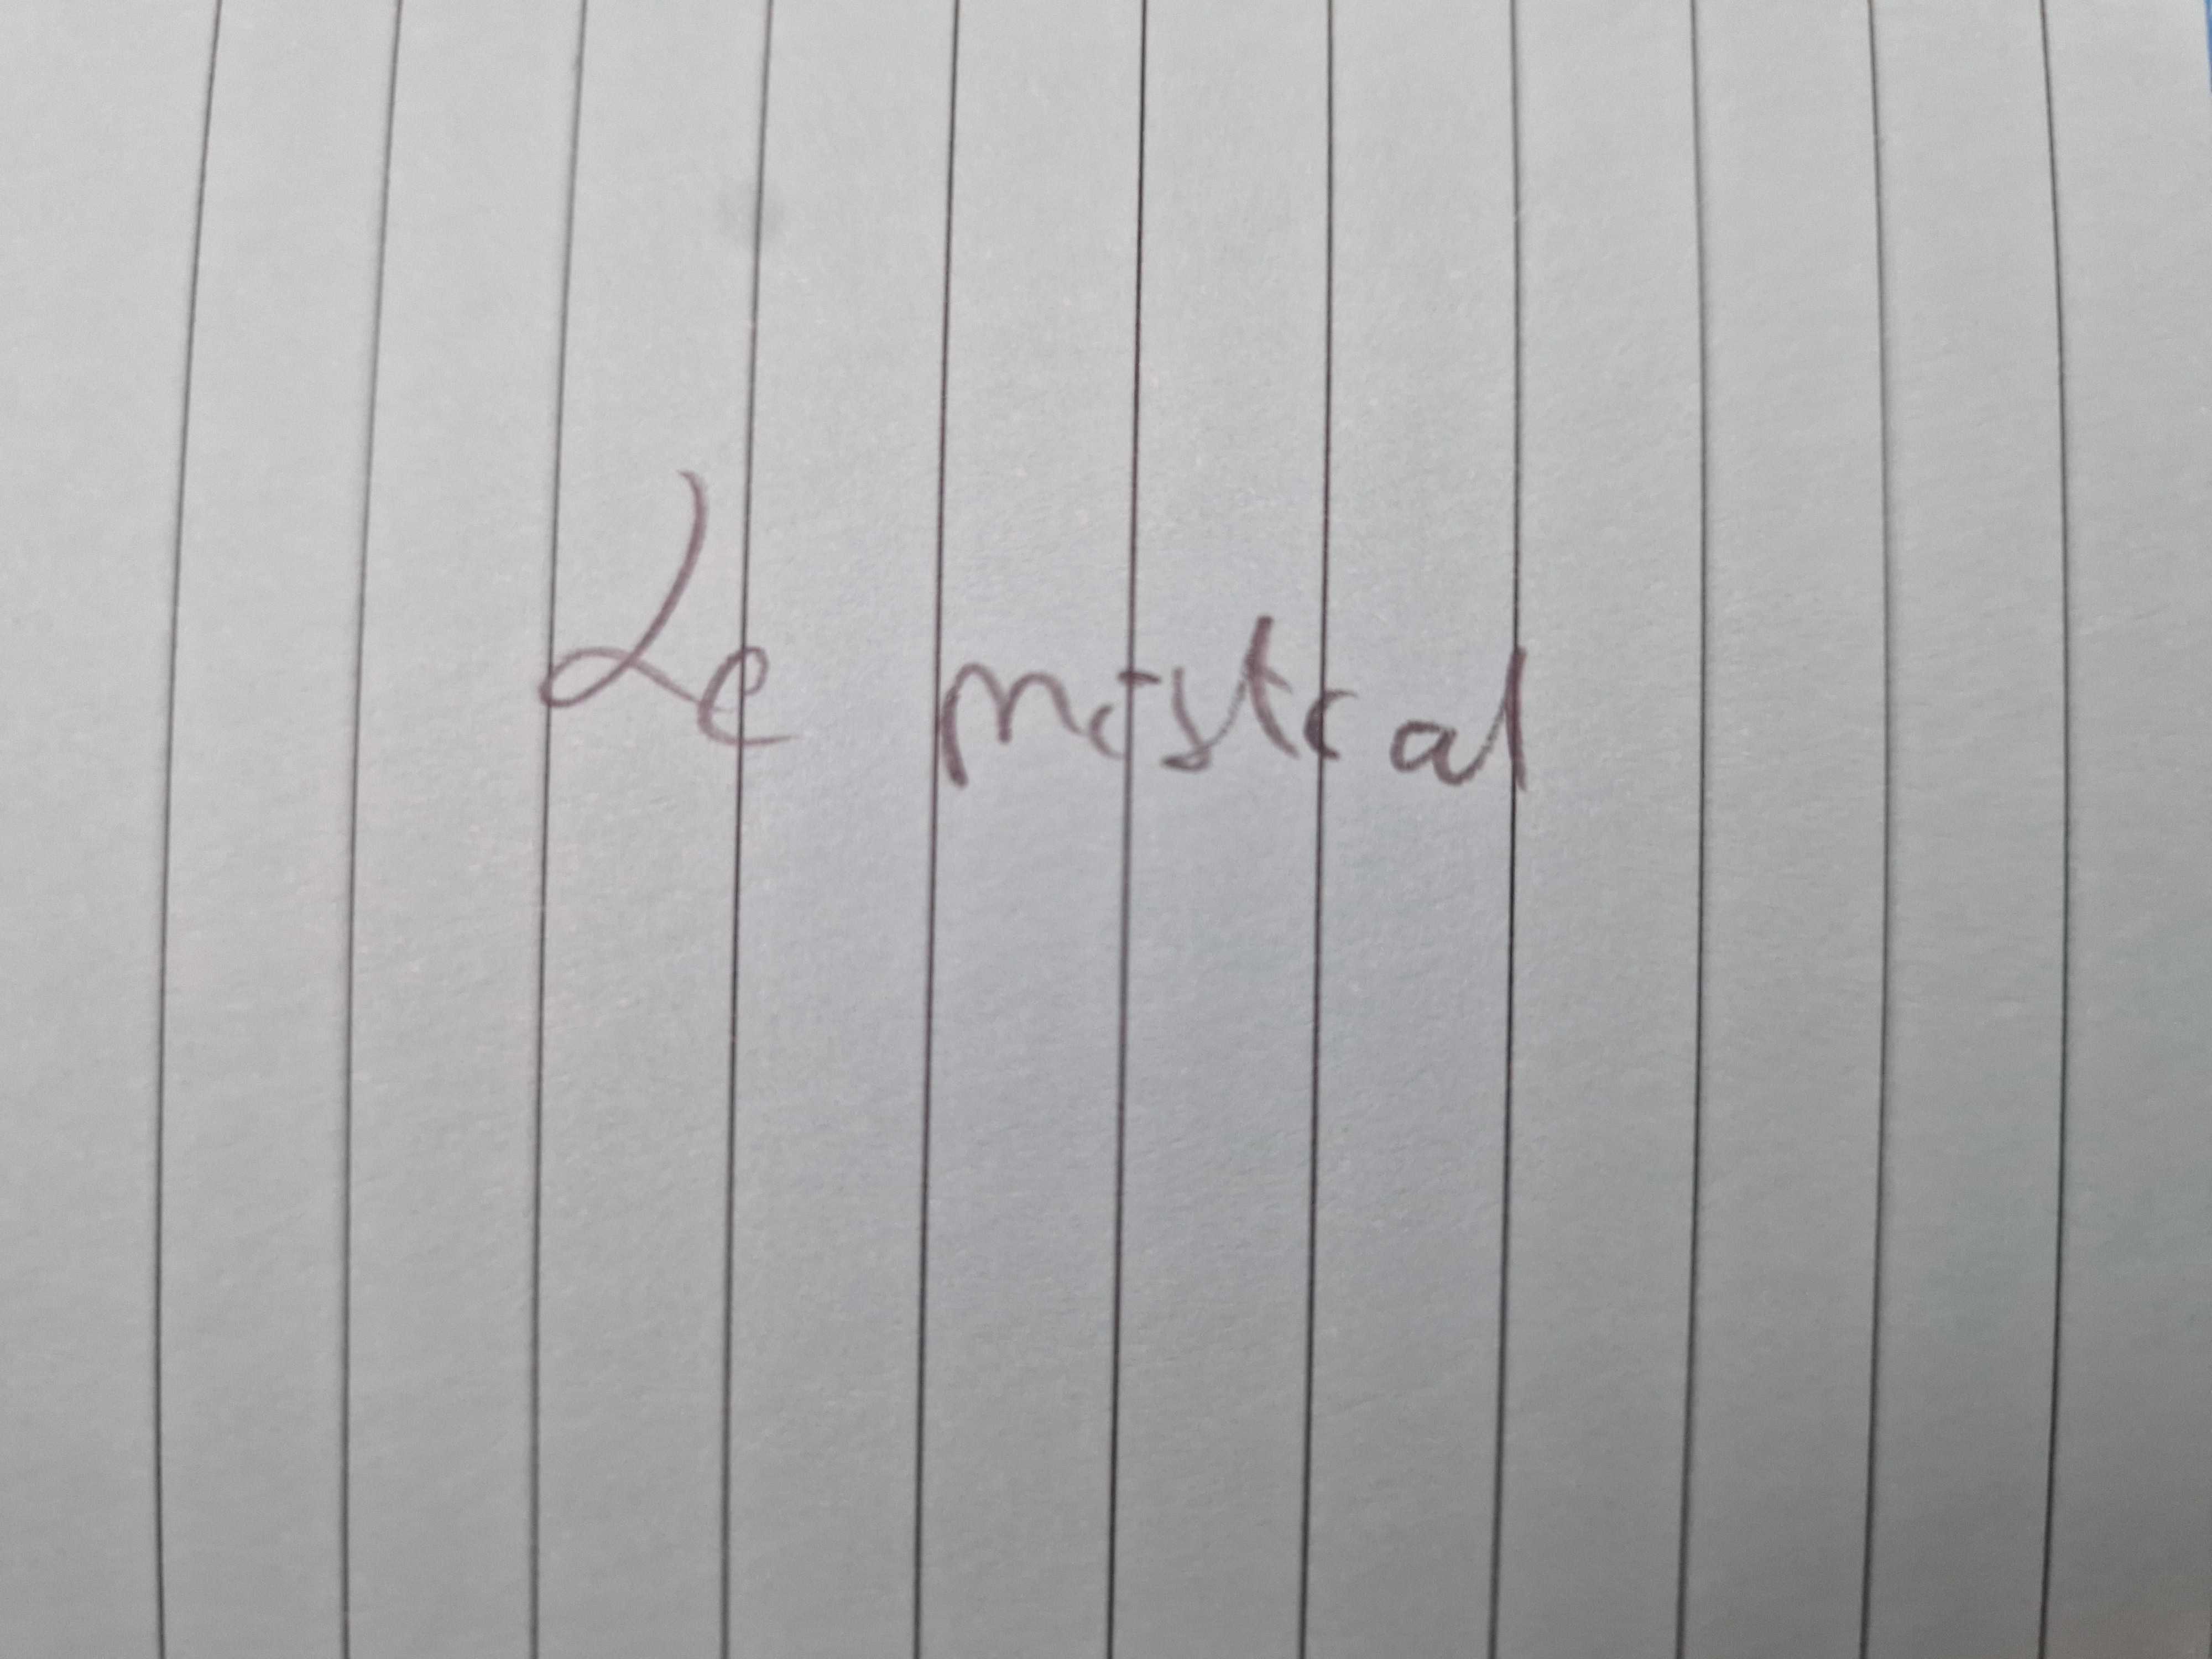 Le mistral